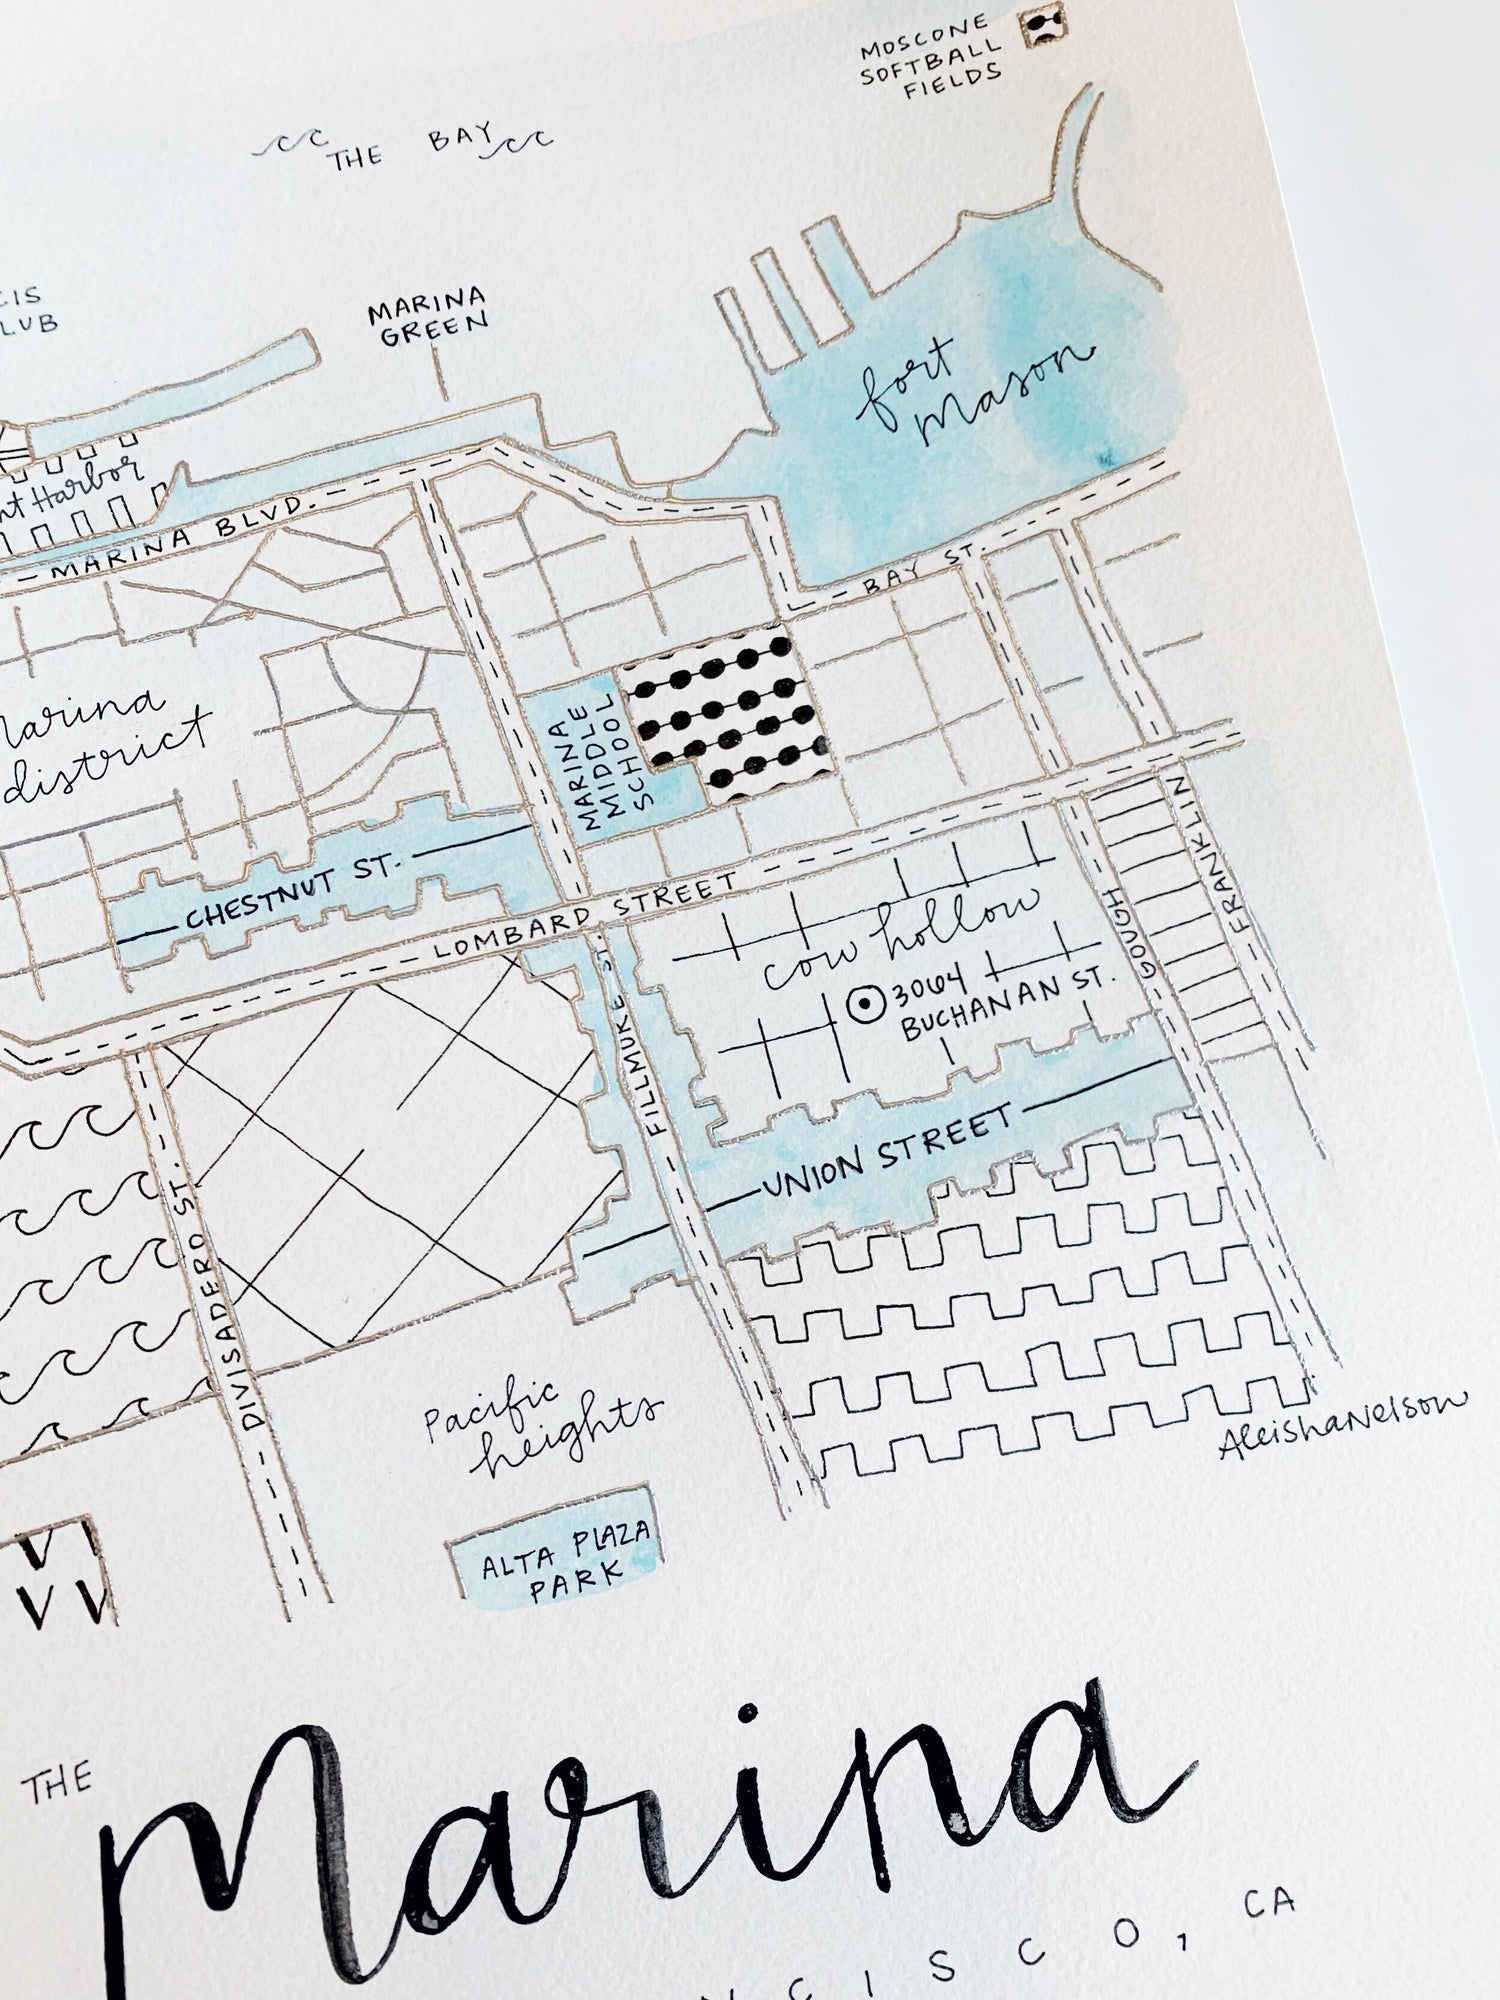 MOSCONE
SOFTBALL
FIELDS
THE BAY
CIS
LUB
MARINA
GREEN
fort
mason
nt Harbor
MARINA BLVD.
BAY ST.
Marina
district
MARINA
MIDDLE
SCHOOL
CHESTNUT ST.
LOMBARD STREET
FRANKLIN
GOUGH
cow hollow
3064
BUCHANAN ST.
FILLMORE ST.
UNION STREET
DIVISADERO ST.
Pacific
heights
AleishaNelson
ALTA PLAZA
PARK
THE
Marina
NCISCO, CA